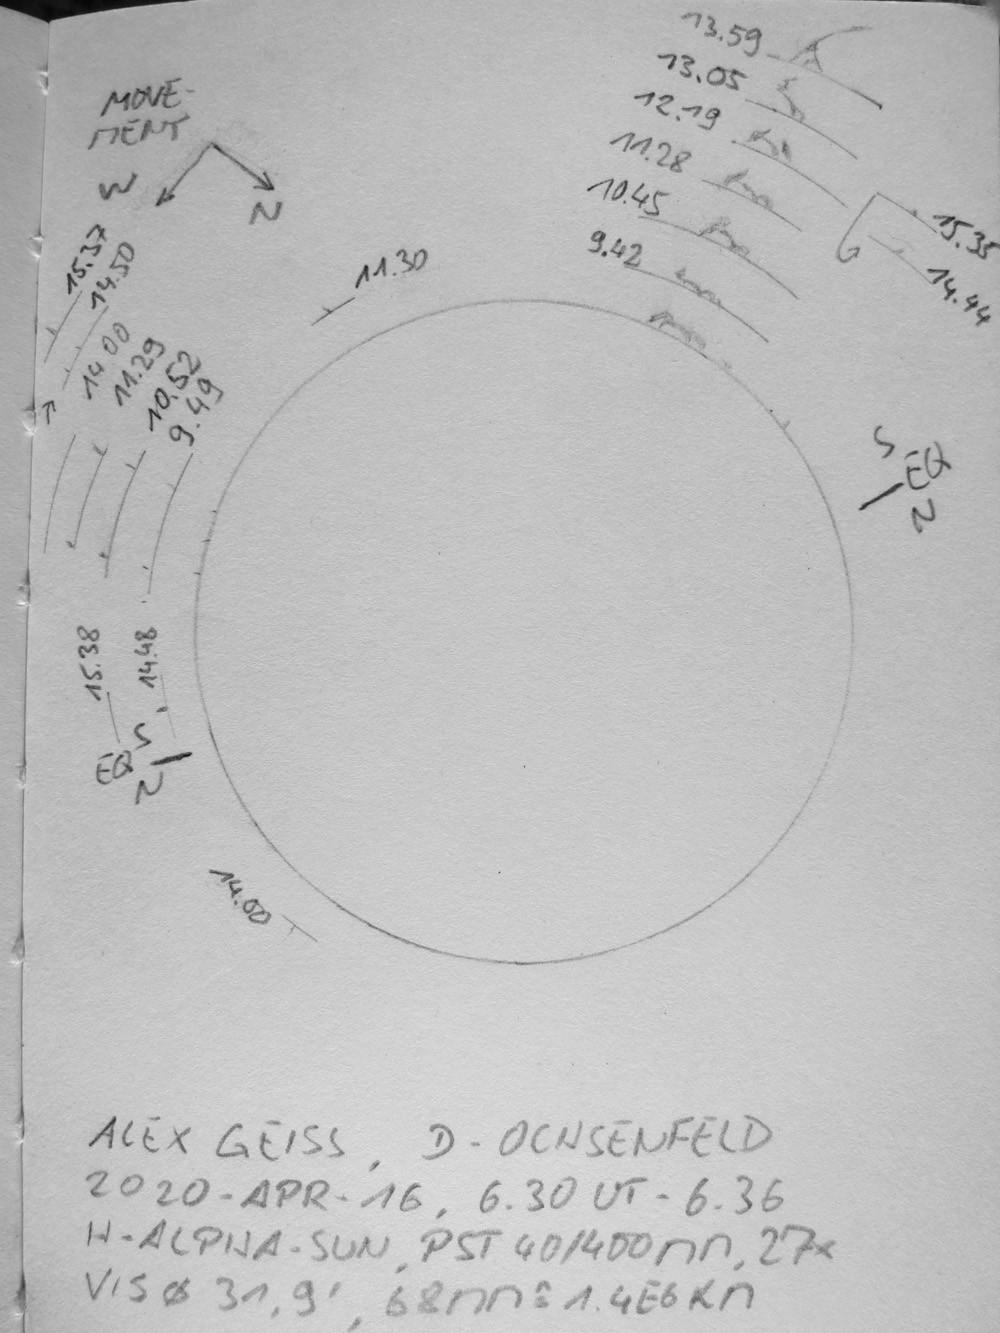 13.59
13.05
12.19
11.28
10.45
9.42
MOVE-
MENT
W
N
15.37
14.50
14.00
11.29
10.52
9.49
11.30
15.35
14.44
S
EQ
N
15.38
14.48
S
EQ
N
14.00
ALEX GEISS, D-OCHSENFELD
2020-APR-16, 6.30 UT-6.36
H-ALPHA-SUN, PST 40/400mm, 27x
VIS ø 31,9', 68mm ≙ 1.4E6 Km